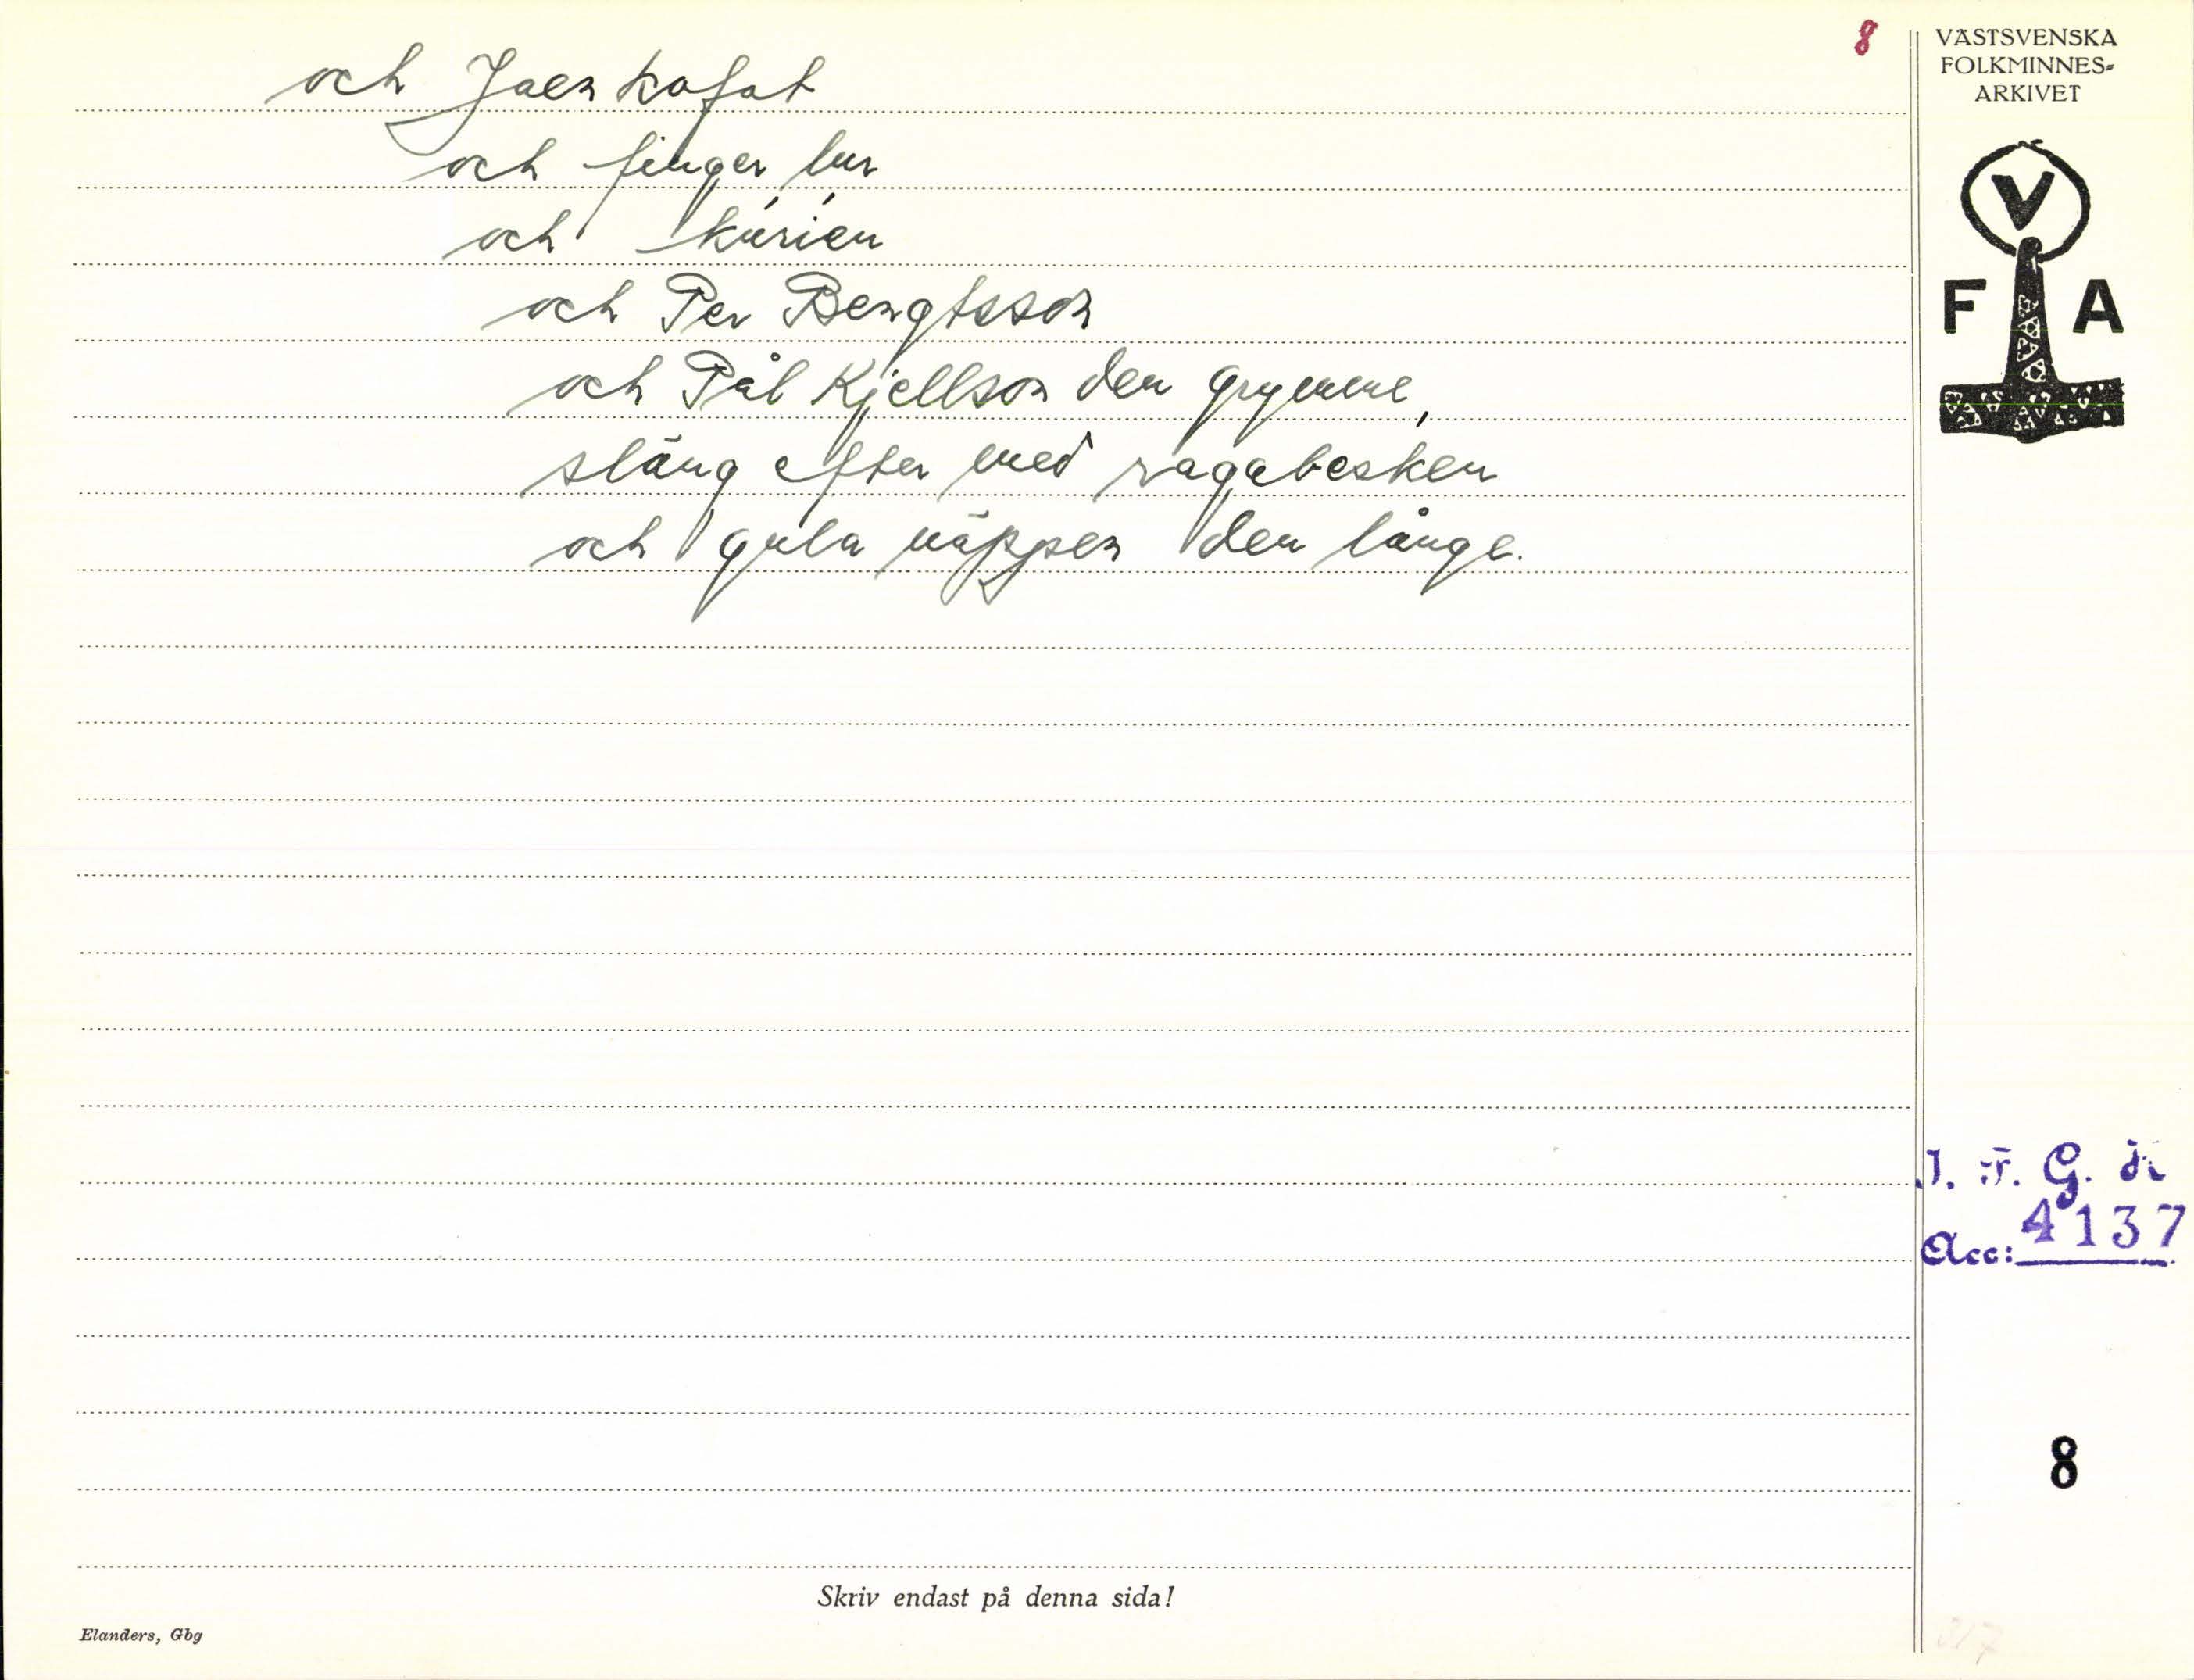 8
och Jaen kafat
och finger lur
och kúrién
och Per Bengtsson
och Pål Kjellson den grymme,
släng efter med ragabesken
och gula näppen den långe.
VÄSTSVENSKA
FOLKMINNES-
ARKIVET
V
F A
I. F. G. H
Acc: 4137
8
Skriv endast på denna sida!
Elanders, Gbg
317